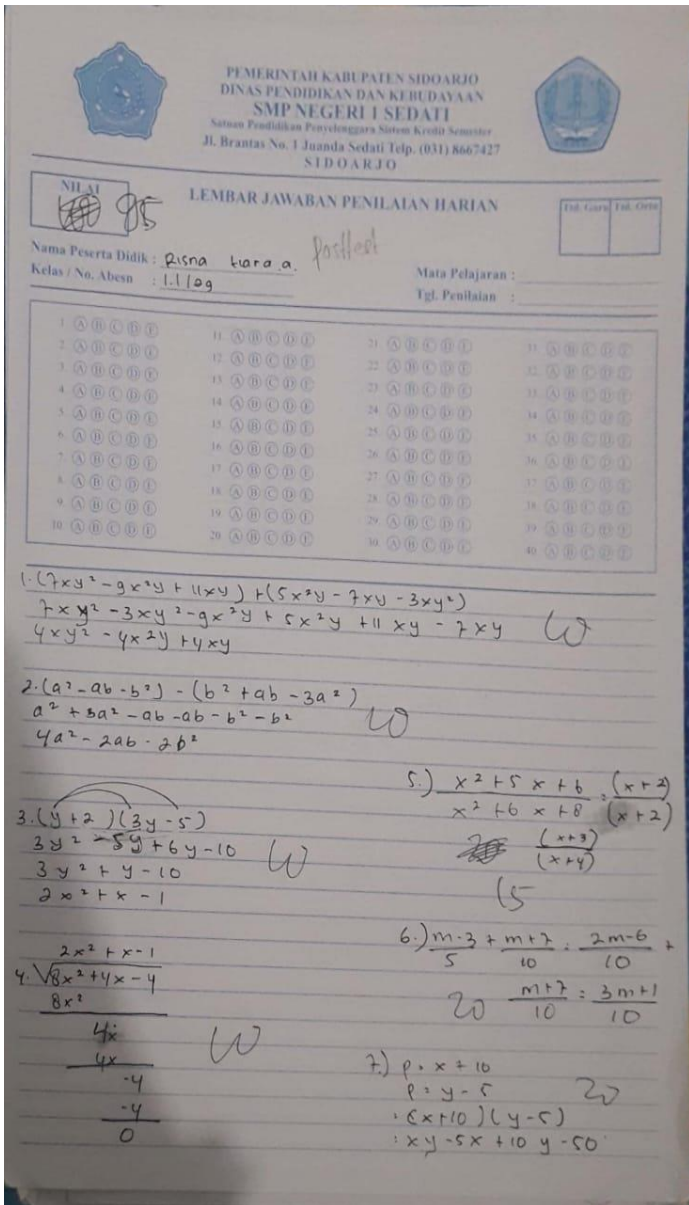 PEMERINTAH KABUPATEN SIDOARJO
DINAS PENDIDIKAN DAN KEBUDAYAAN
SMP NEGERI 1 SEDATI
Satuan Pendidikan Penyelenggara Sistem Kredit Semester
Jl. Brantas No. 1 Juanda Sedati Telp. (031) 8667427
SIDOARJO
NILAI
95
LEMBAR JAWABAN PENILAIAN HARIAN
Ttd. Guru Ttd. Ortu
Posttest
Nama Peserta Didik : Risna tiara a.
Kelas / No. Abesn : 1.1/09
Mata Pelajaran :
Tgl. Penilaian :
1. A B C D E
2. A B C D E
3. A B C D E
4. A B C D E
5. A B C D E
6. A B C D E
7. A B C D E
8. A B C D E
9. A B C D E
10. A B C D E
11. A B C D E
12. A B C D E
13. A B C D E
14. A B C D E
15. A B C D E
16. A B C D E
17. A B C D E
18. A B C D E
19. A B C D E
20. A B C D E
21. A B C D E
22. A B C D E
23. A B C D E
24. A B C D E
25. A B C D E
26. A B C D E
27. A B C D E
28. A B C D E
29. A B C D E
30. A B C D E
31. A B C D E
32. A B C D E
33. A B C D E
34. A B C D E
35. A B C D E
36. A B C D E
37. A B C D E
38. A B C D E
39. A B C D E
40. A B C D E
1. (7xy² - 9x²y + 11xy) + (5x²y - 7xy - 3xy²)
7xy² - 3xy² - 9x²y + 5x²y + 11xy - 7xy
4xy² - 4x²y + 4xy
10
2. (a² - ab - b²) - (b² + ab - 3a²)
a² + 3a² - ab - ab - b² - b²
4a² - 2ab - 2b²
10
3. (y + 2)(3y - 5)
3y² - 5y + 6y - 10
3y² + y - 10
2x² + x - 1
10
2x² + x - 1
4. √8x² + 4x - 4
8x²
4x
4x
-4
-4
0
10
5.) x² + 5x + 6 / x² + 6x + 8 = (x + 2) / (x + 2)
(x + 3) / (x + 4)
15
6.) m - 3 / 5 + m + 7 / 10 = 2m - 6 / 10 +
m + 7 / 10 = 3m + 1 / 10
20
7.) p = x + 10
l = y - 5
= (x + 10)(y - 5)
= xy - 5x + 10y - 50
20